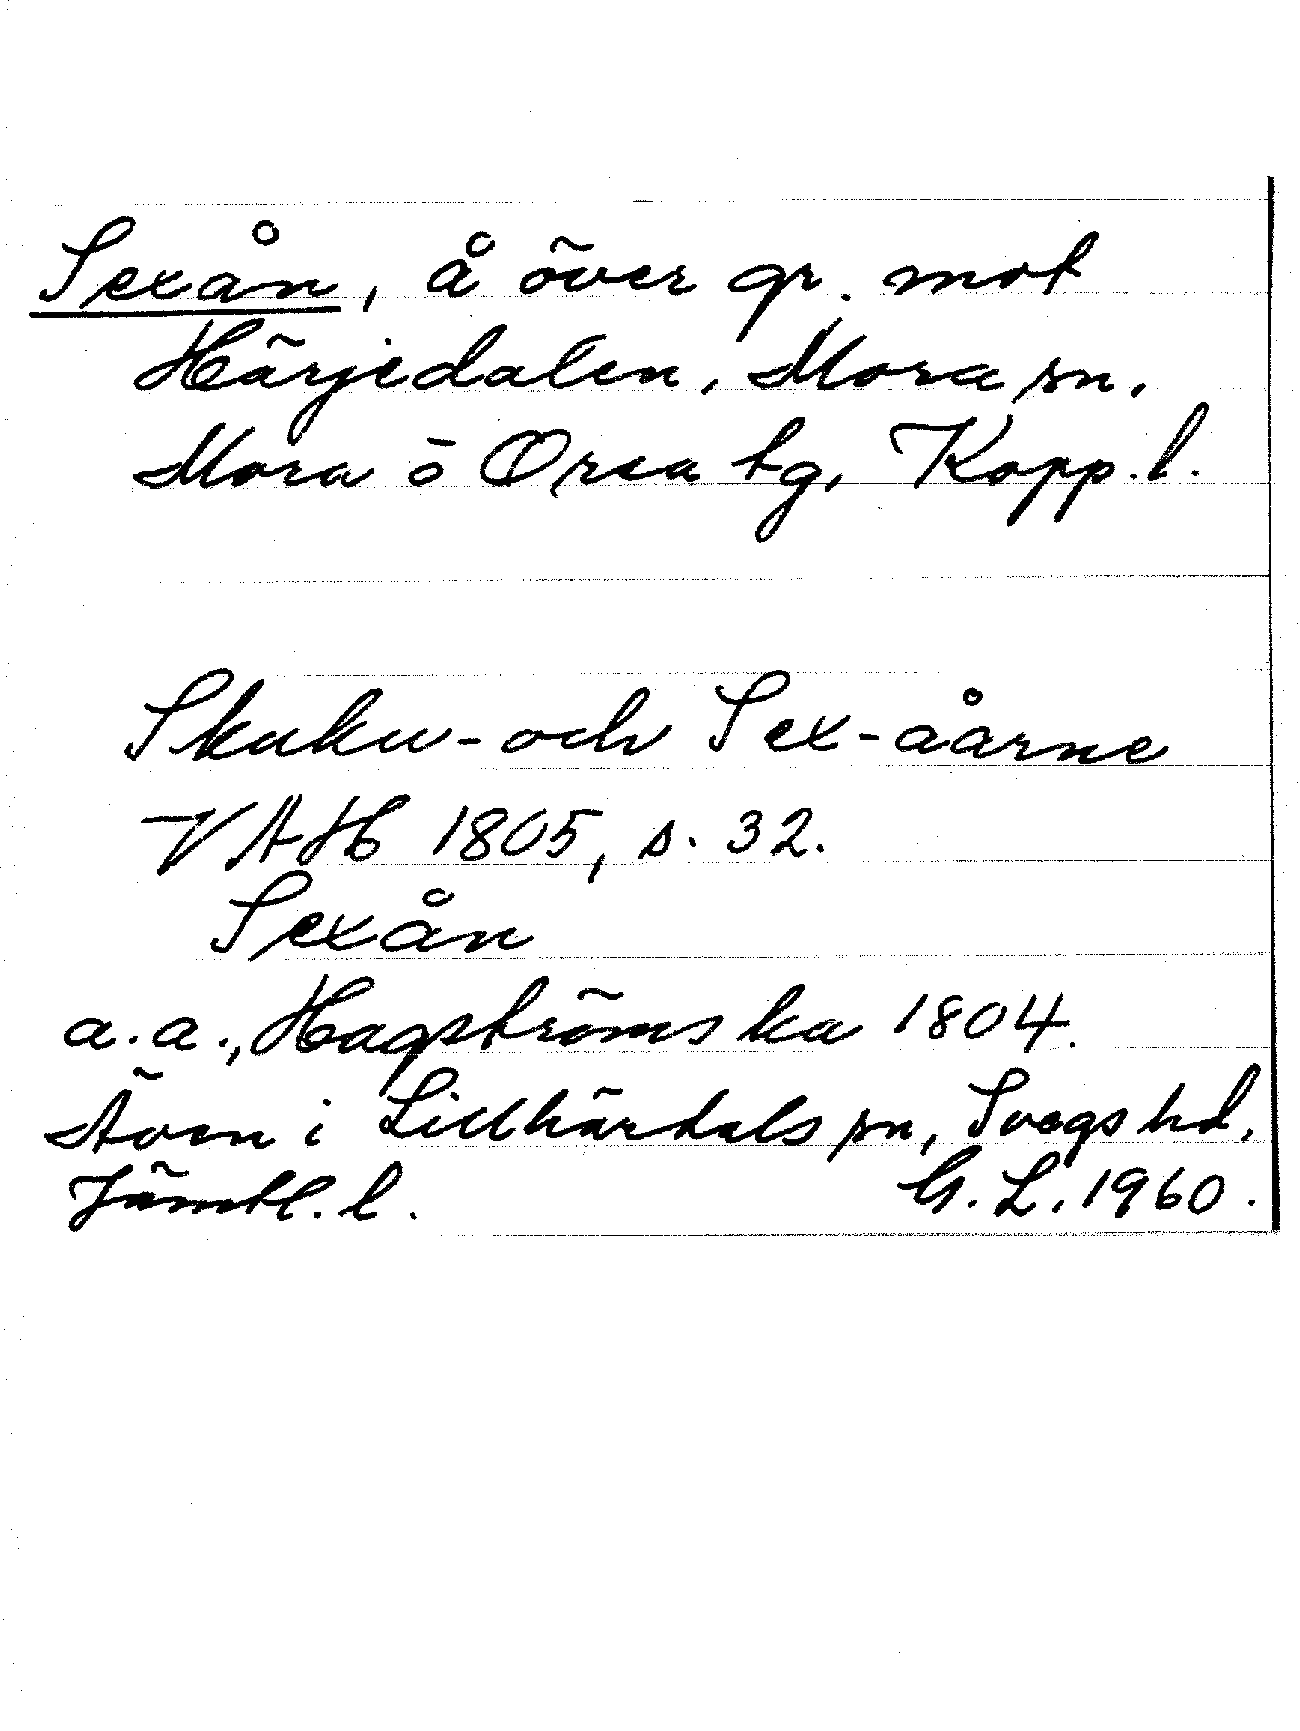 Sexån, å över gr. mot
Härjedalen, Mora sn.
Mora o Orsa tg, Kopp. l.
Skuku- och Sex-åarne
VAH 1805, s. 32.
Sexån
a.a., Hagströms ka 1804.
Även i Lillhärdals sn, Svegs hd,
Jämtl. l. G. L. 1960.